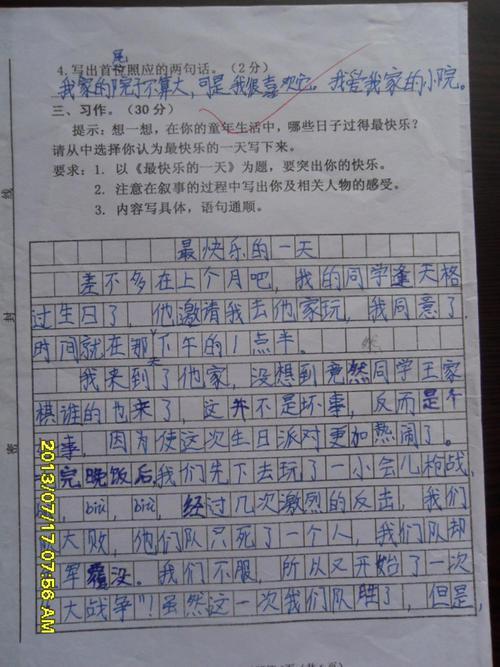 4.写出首尾照应的两句话。（2分）
我家的院子不算大，可是我很喜欢它。我爱我家的小院。
三、习作。（30分）
提示：想一想，在你的童年生活中，哪些日子过得最快乐？
请从中选择你认为最快乐的一天写下来。
要求：1. 以《最快乐的一天》为题，要突出你的快乐。
2. 注意在叙事的过程中写出你及相关人物的感受。
3. 内容写具体，语句通顺。
最快乐的一天
差不多在上个月吧，我的同学逢天格
过生日了，他邀请我去他家玩，我同意了.
时间就在那天下午的1点半。
我来到了他家，没想到竟然同学王家
棋谁的也来了，这并不是坏事，反而是个
事，因为使这次生日派对更加热闹了。
完晚饭后,我们先下去玩了一小会儿枪战,
，biu，biu，经过几次激烈的反击，我们
大败，他们队只死了一个人，我们队却
军覆没。我们不服，所以又开始了一次
大战争"！虽然这一次我们队胜了，但是，
线
封
密
2013/07/17 07:56 AM